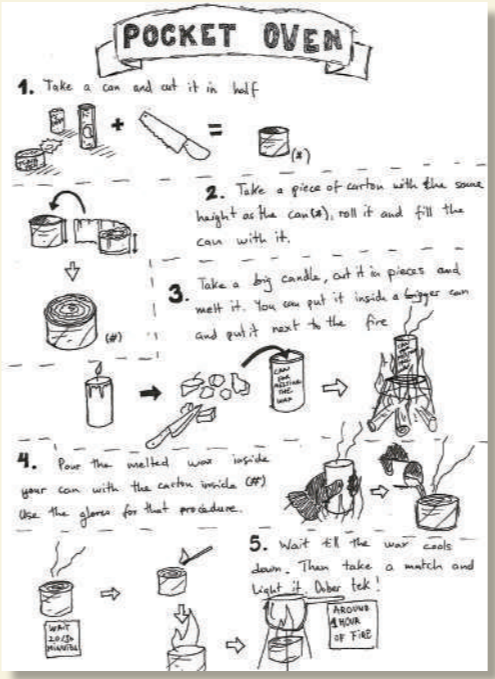 POCKET OVEN
1. Take a can and cut it in half
+
=
(*)
2. Take a piece of carton with the same
height as the can(*), roll it and fill the
can with it.
(#)
3. Take a big candle, cut it in pieces and
melt it. You can put it inside a bigger can
and put it next to the fire
CAN
FOR
MELTING
THE
WAX
4. Pour the melted wax inside
your can with the carton inside (#)
Use the gloves for that procedure.
5. Wait till the wax cools
down. Then take a match and
light it. Dober tek!
WAIT
20/30
MINUTES
AROUND
1 HOUR
OF FIRE